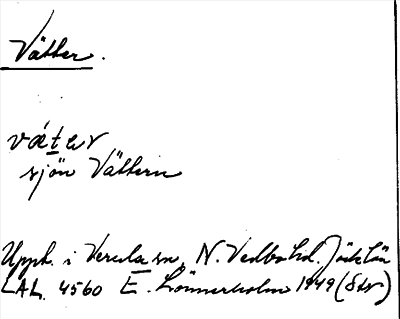 Vätter.
vätər
sjön Vättern
Uppt. i Vereda sn, N. Vedbo hd. Jönk. Län
LAL. 4560 E. Lönnerholm 1949